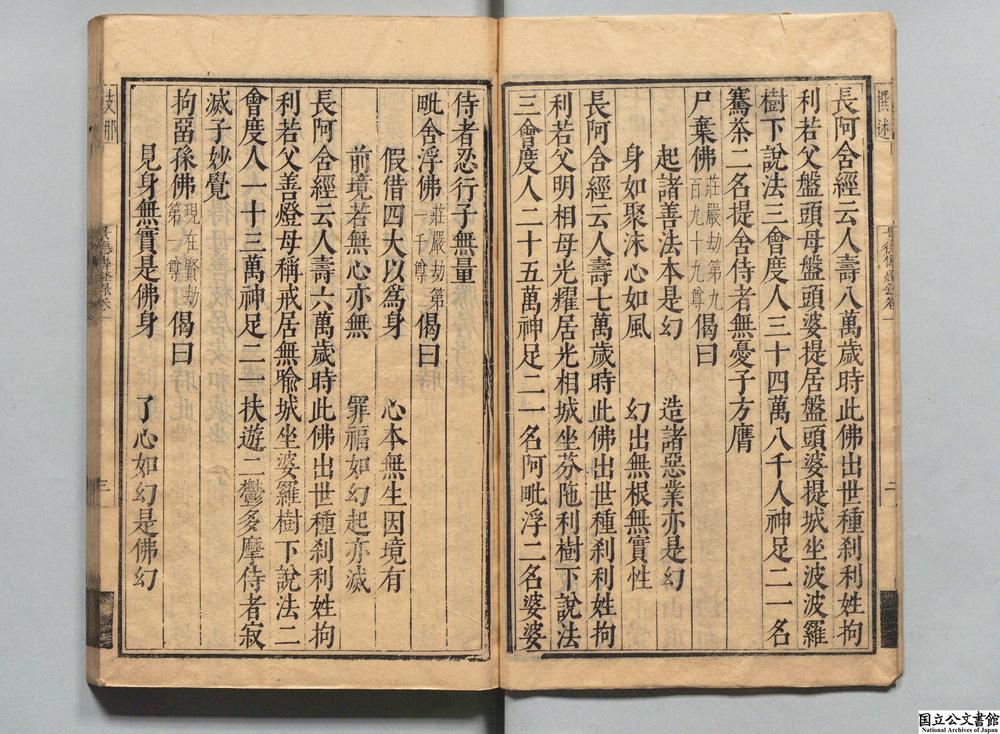 長阿含經云人壽八萬歲時此佛出世種刹利姓拘
利若父盤頭母盤頭婆提居盤頭婆提城坐波波羅
樹下說法三會度人三十四萬八千人神足二一名
騫茶二名提舍侍者無憂子方膺
尸棄佛莊嚴劫第九百九十九尊偈曰
起諸善法本是幻 造諸惡業亦是幻
身如聚沫心如風 幻出無根無實性
長阿含經云人壽七萬歲時此佛出世種刹利姓拘
利若父明相母光耀居光相城坐芬陁利樹下說法
三會度人二十五萬神足二一名阿毗浮二名婆婆
侍者忍行子無量
毗舍浮佛莊嚴劫第一千尊偈曰
假借四大以爲身 心本無生因境有
前境若無心亦無 罪福如幻起亦滅
長阿含經云人壽六萬歲時此佛出世種刹利姓拘
利若父善燈母稱戒居無喻城坐婆羅樹下說法二
會度人一十三萬神足二一扶遊二鬱多摩侍者寂
滅子妙覺
拘畱孫佛現在賢劫第一尊偈曰
見身無實是佛身 了心如幻是佛幻
三
国立公文書館
National Archives of Japan